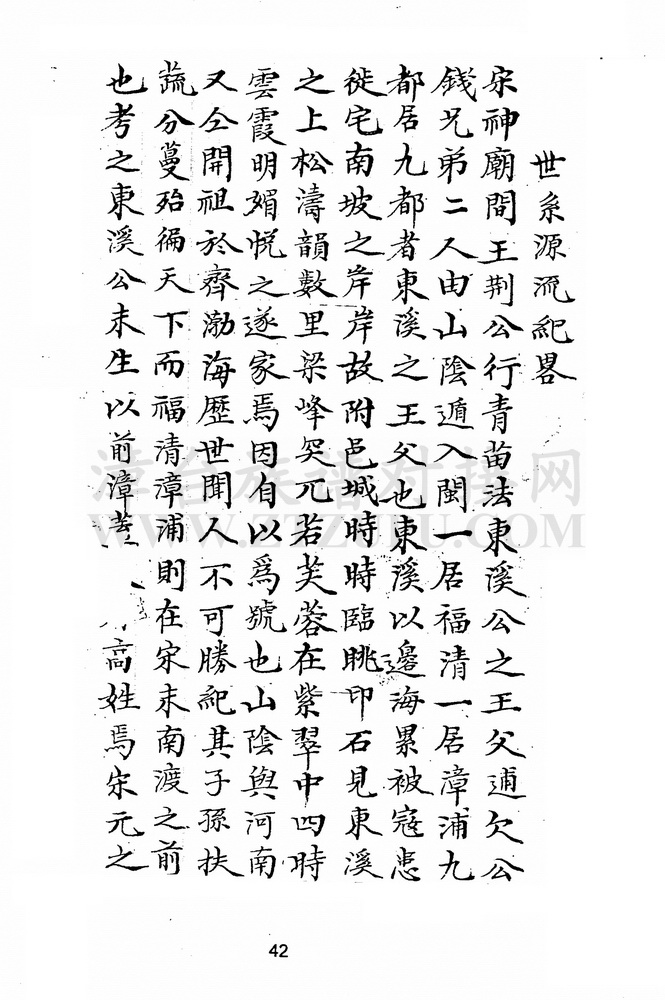 世系源流紀畧
宋神廟間王荆公行青苗法東溪公之王父逋欠公
錢兄弟二人由山陰遁入閩一居福清一居漳浦九
都居九都者東溪之王父也東溪以邊海累被寇患
徙宅南坡之岸岸故附邑城時時臨眺印石見東溪
之上松濤韻數里梁峰突兀若芙蓉在紫翠中四時
雲霞明媚悅之遂家焉因自以爲號也山陰與河南
又仝開祖於齊渤海歷世聞人不可勝紀其子孫扶
蔬分蔓殆徧天下而福清漳浦則在宋末南渡之前
也考之東溪公未生以前漳 高姓焉宋元之
漳台族譜對接網
WWW.ZTZUPU.COM
42